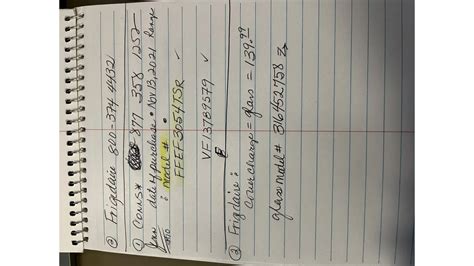 @ Frigidaire 800-374-4432
① Cons* 877 358 1252
date of purchase • Nov 13, 2021 Range
: model #
FFEF3054TSR
VF13789579 ✓
② Frigidaire:
Court Charge = glass = 139.99
glass model # 316452758